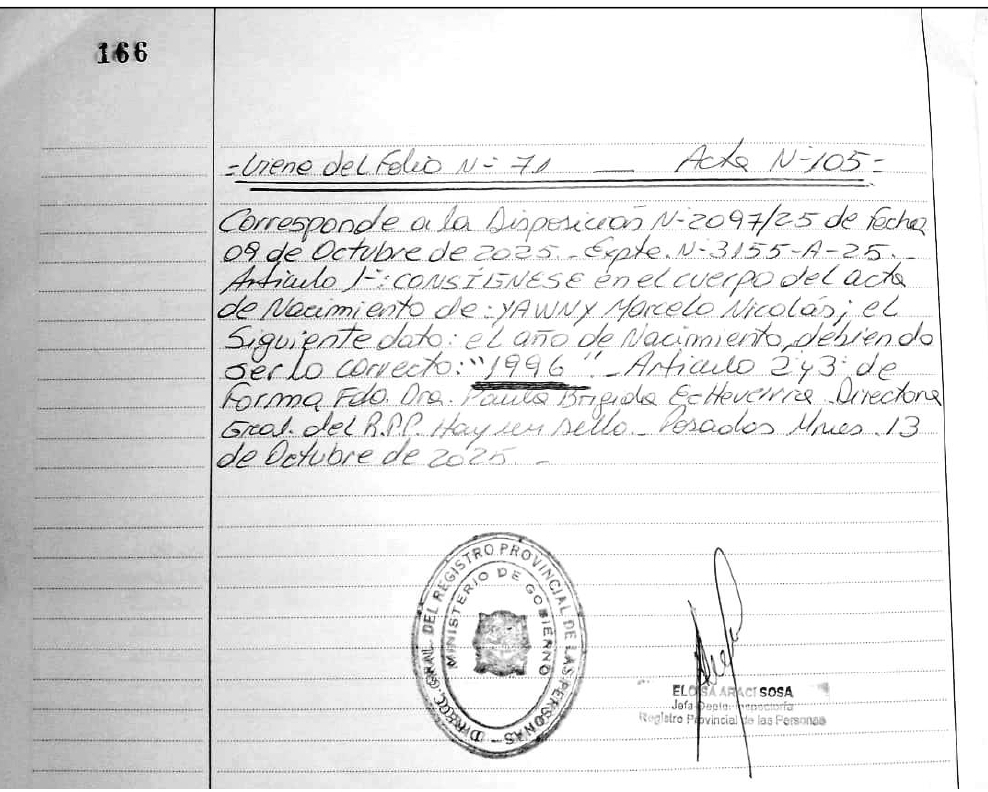 166
=Viene del Folio N- 71 — Acta N-105=
Corresponde a la Disposición N-2097/25 de fecha
09 de Octubre de 2025.- Expte. N-3155-A-25.-
Artículo 1-: CONSÍGNESE en el cuerpo del acta
de Nacimiento de: YAWNY Marcelo Nicolás; el
Siguiente dato: el año de Nacimiento, debiendo
ser lo correcto: "1996".- Artículo 2 y 3 de
Forma Fdo. Dra. Paula Brigida Echeverria Directora
Gral. del R.P.P. Hay un sello.- Posadas Mnes. 13
de Octubre de 2025.-
DIRECC. GRAL. DEL REGISTRO PROVINCIAL DE LAS PERSONAS -
MINISTERIO DE GOBIERNO
ELOISA ARACI SOSA
Jefa Depto. Inspectoría
Registro Provincial de las Personas